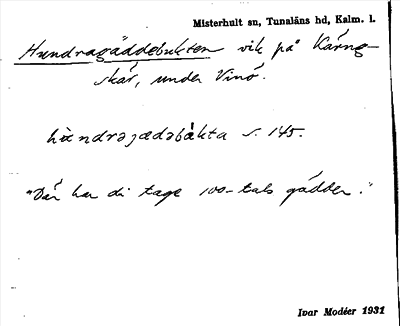 Misterhult sn, Tunaläns hd, Kalm. l.
Hundragäddebukten vik på Kärng-
skär, under Vinö.
hùndrəjædəbùkta s. 145.
"Där har di tage 100-tals gäddor."
Ivar Modéer 1931